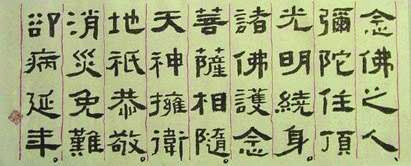 念佛之人。
彌陀住頂
光明繞身。
諸佛護念
菩薩相隨。
天神擁衛
地祇恭敬。
消災免難
卻病延年。